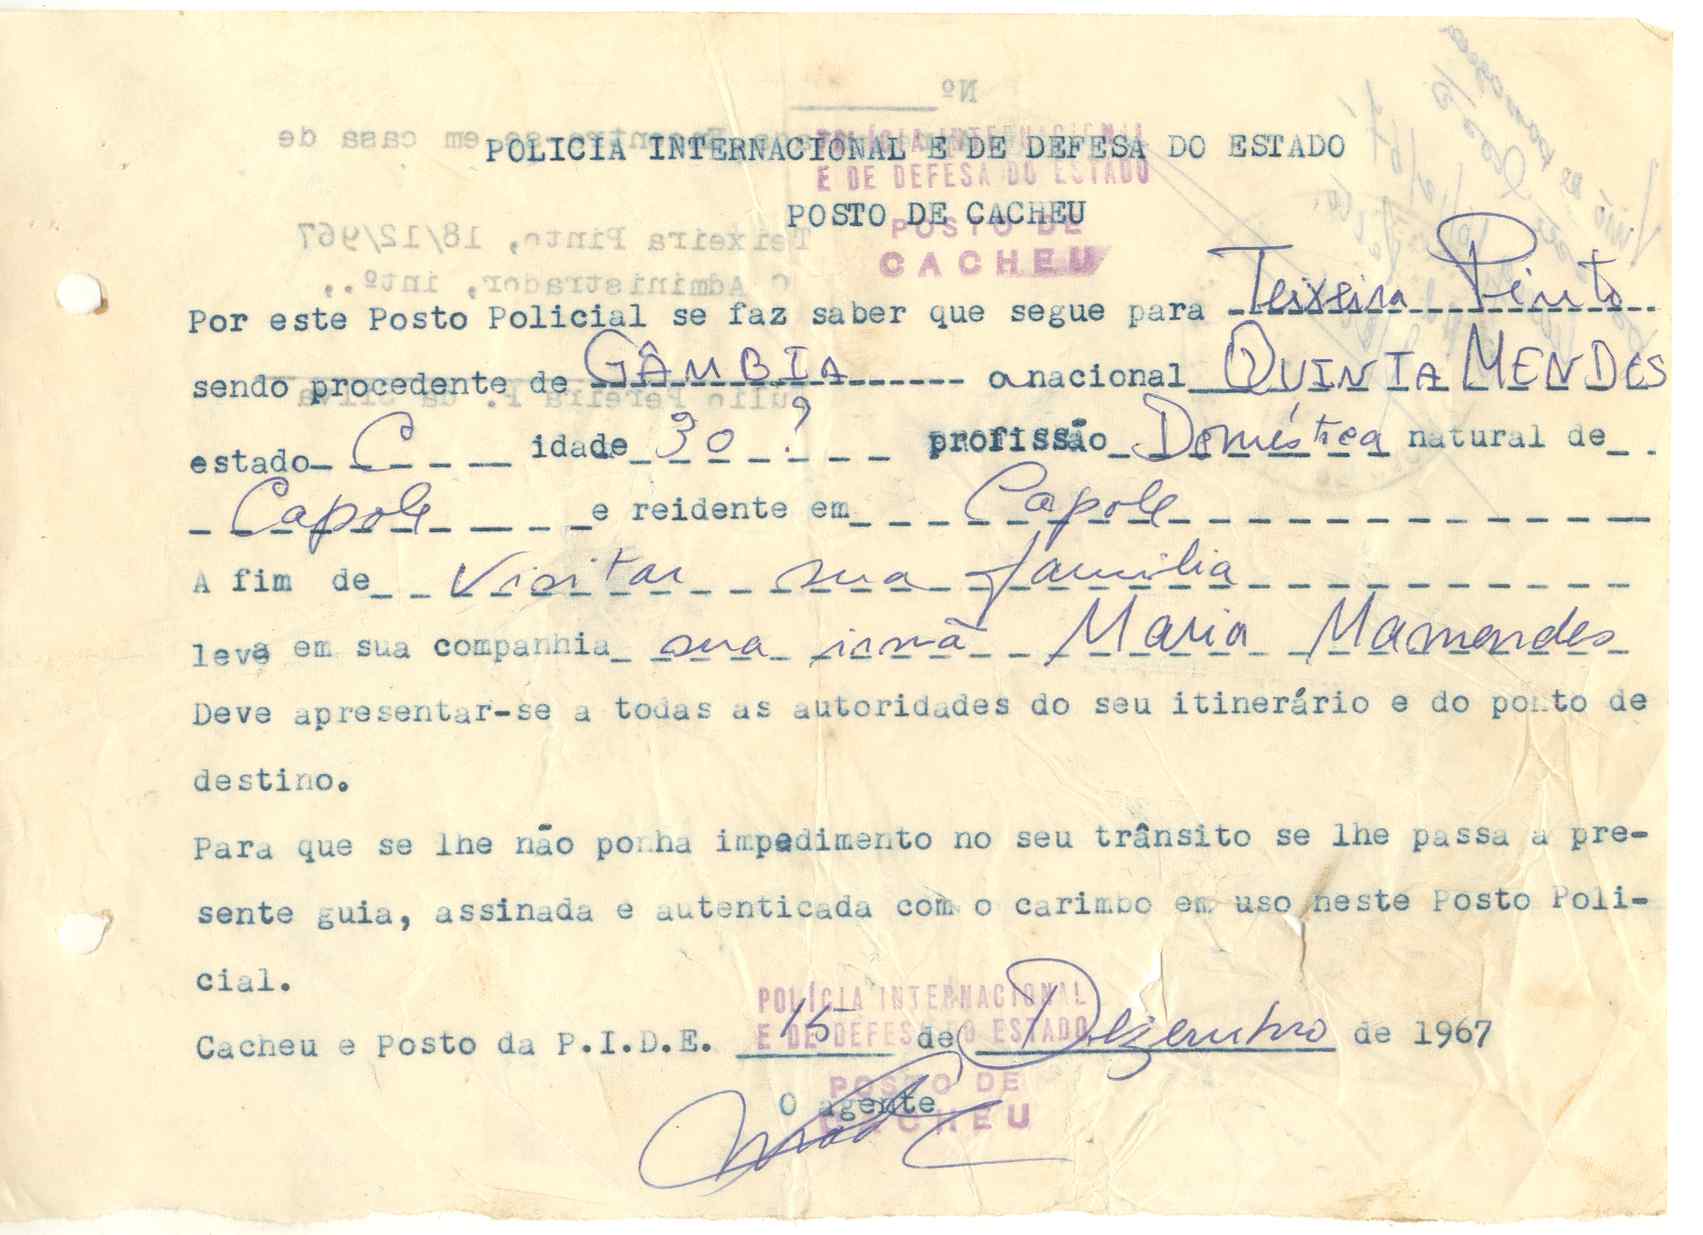 Nº
POLICIA INTERNACIONAL E DE DEFESA DO ESTADO
POLÍCIA INTERNACIONAL
E DE DEFESA DO ESTADO
POSTO DE CACHEU
POSTO DE
CACHEU
Por este Posto Policial se faz saber que segue para Teixeira Pinto
sendo procedente de GÂMBIA a nacional QUINTA MENDES
estado C idade 30 ? profissão Doméstica natural de
Capole e reidente em Capole
A fim de visitar sua familia
leva em sua companhia sua irmã Maria Mamendes
Deve apresentar-se a todas as autoridades do seu itinerário e do ponto de
destino.
Para que se lhe não ponha impedimento no seu trânsito se lhe passa a pre-
sente guia, assinada e autenticada com o carimbo em uso neste Posto Poli-
cial.
POLÍCIA INTERNACIONAL
E DE DEFESA DO ESTADO
Cacheu e Posto da P.I.D.E. 15 de Dezembro de 1967
POSTO DE
CACHEU
O agente
em casa de
Teixeira Pinto, 18/12/967
O Administrador, intº.,
Julio Pereira P. da Silva